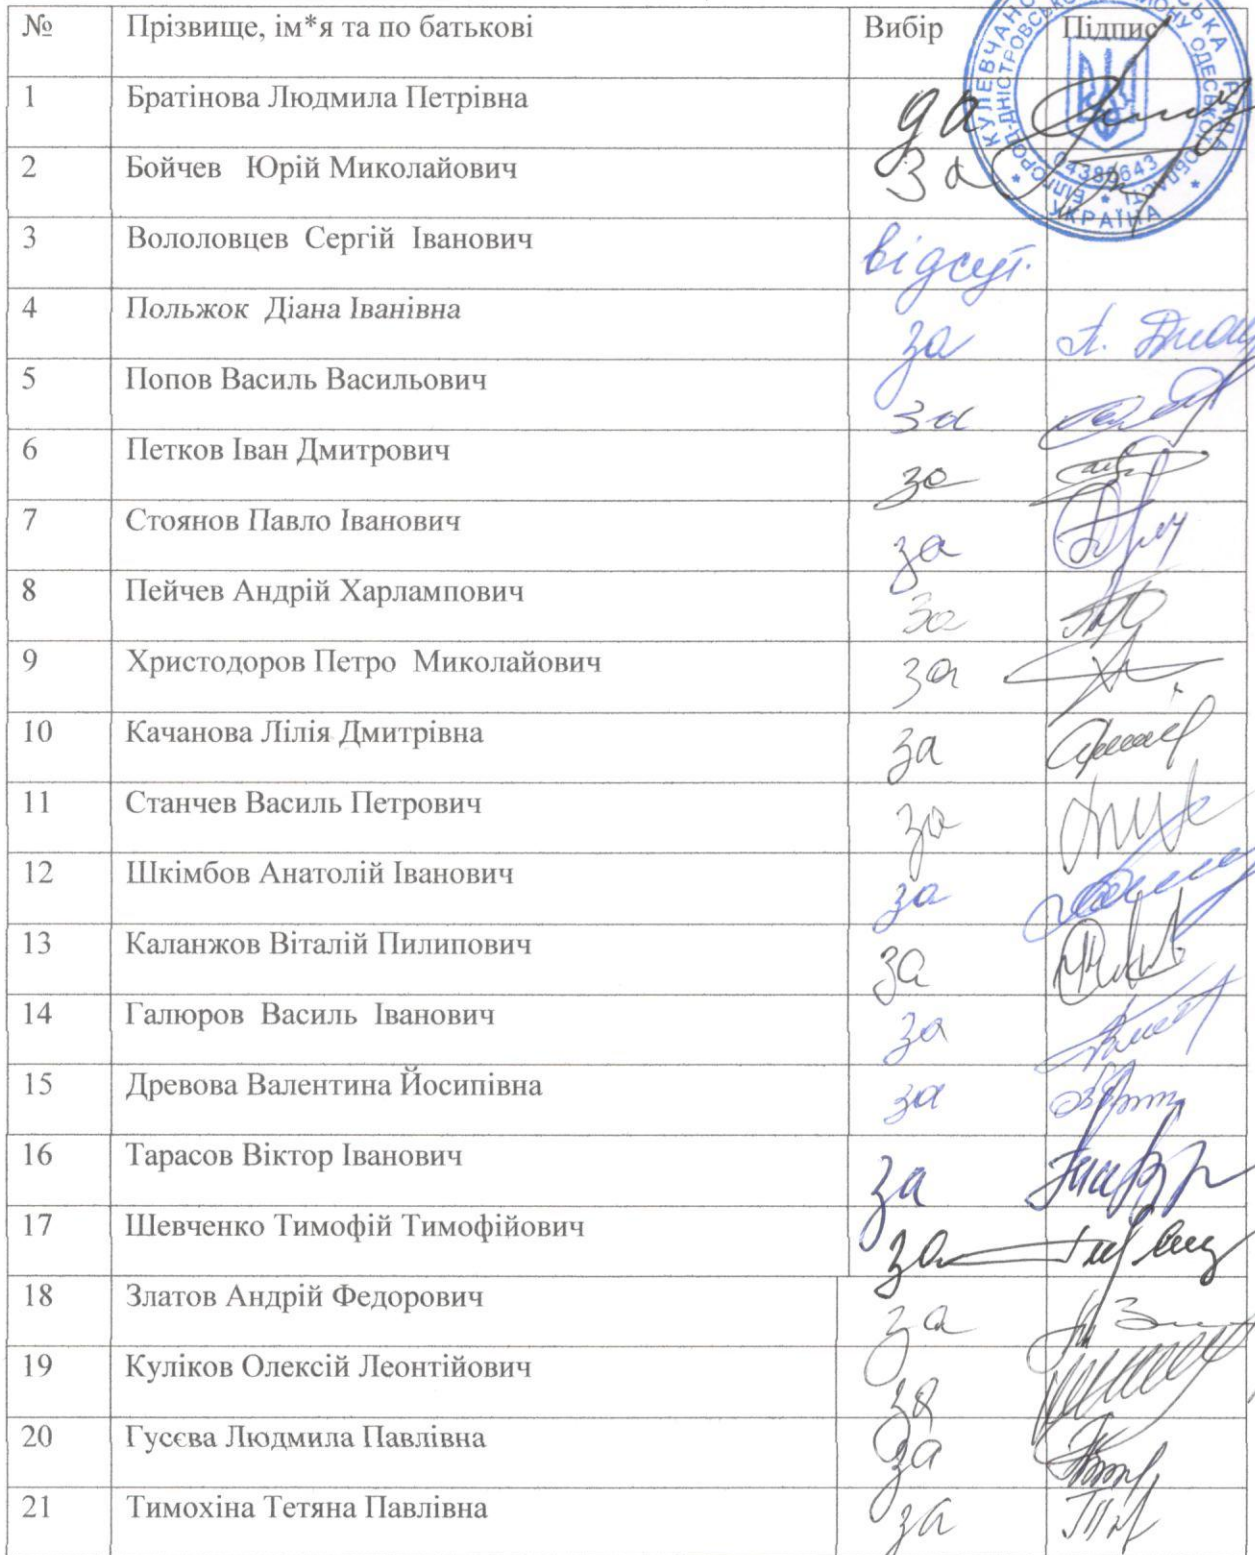 № Прізвище, ім*я та по батькові Вибір Підпис
1 Братінова Людмила Петрівна да
2 Бойчев Юрій Миколайович За
3 Вололовцев Сергій Іванович відсут.
4 Польжок Діана Іванівна за
5 Попов Василь Васильович За
6 Петков Іван Дмитрович за
7 Стоянов Павло Іванович за
8 Пейчев Андрій Харлампович За
9 Христодоров Петро Миколайович за
10 Качанова Лілія Дмитрівна за
11 Станчев Василь Петрович за
12 Шкімбов Анатолій Іванович за
13 Каланжов Віталій Пилипович за
14 Галюров Василь Іванович за
15 Древова Валентина Йосипівна за
16 Тарасов Віктор Іванович за
17 Шевченко Тимофій Тимофійович за
18 Златов Андрій Федорович за
19 Куліков Олексій Леонтійович за
20 Гусєва Людмила Павлівна за
21 Тимохіна Тетяна Павлівна за
РАДА
УКРАЇНА